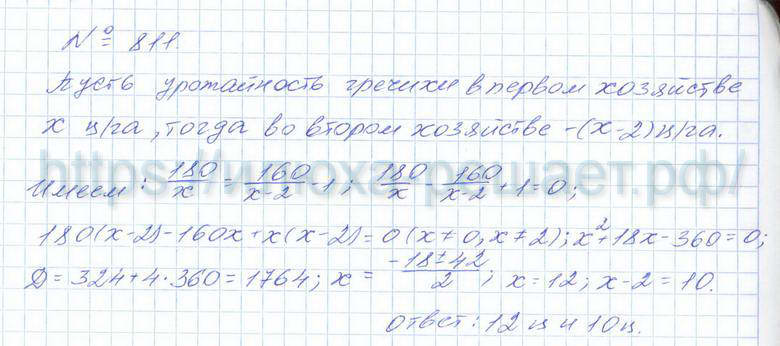 № 811.
Пусть урожайность гречихи в первом хозяйстве
х ц/га, тогда во втором хозяйстве -(х-2) ц/га.
https://илоха решает.рф/
Имеем: 180/x = 160/(x-2) - 1; 180/x - 160/(x-2) + 1 = 0;
180(x-2)-160x+x(x-2)=0 (x≠0, x≠2); x²+18x-360=0;
D=324+4·360=1764; x = (-18±42)/2; x=12; x-2=10.
Ответ: 12 ц и 10 ц.